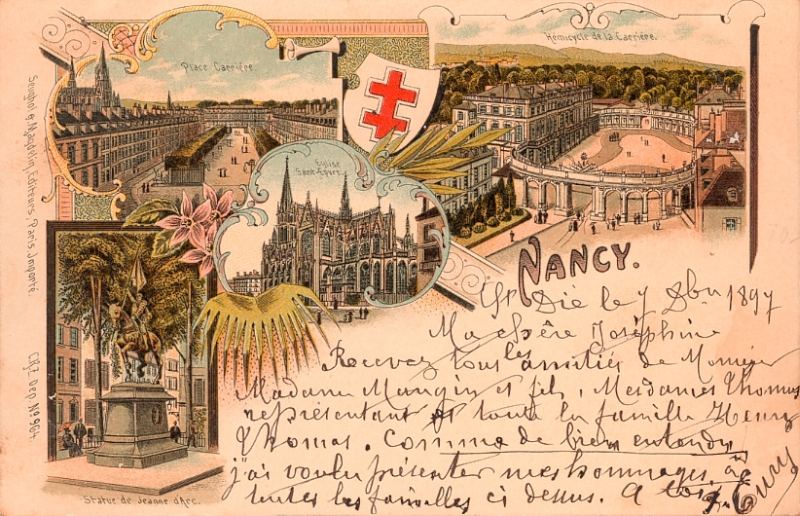 Place Carrière.
Hémicycle de la Carrière.
Eglise
Saint Epvre.
NANCY.
Statue de Jeanne d'Arc.
Editeurs, Paris. Importé.
C.R.Z. Dep. No 964
St Dié le 7 Xbre 1897
Ma chère Joséphine
Recevez tous les amitiés de Monsieur
Madame Mangin et fils, Mesdames Thomas
représentant et toute la famille Henry
Thomas. Comme de bien entendu
j'ai voulu présenter mes hommages, à
toutes les familles ci dessus. A toi